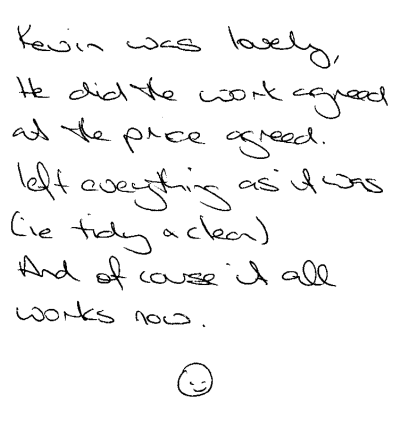 Kevin was lovely,
He did the work agreed
at the price agreed.
left everything as it was
(ie tidy & clean)
And of couse it all
works now.